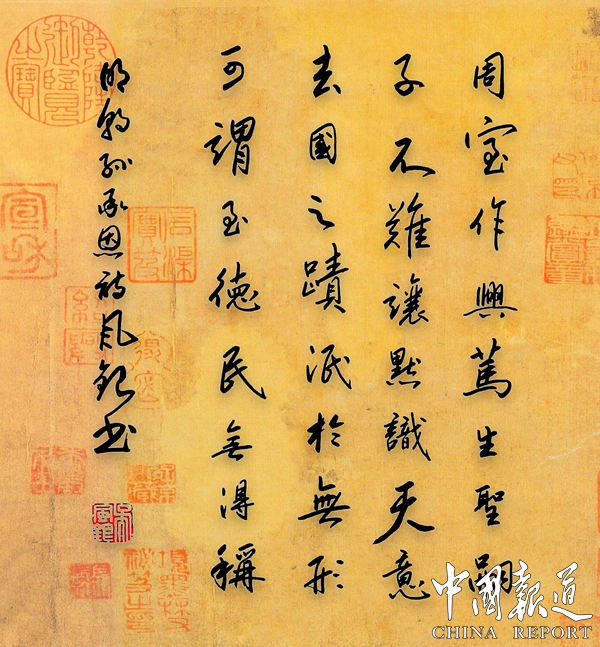 周室作興篤生聖嗣
子不難讓默識天意
去國之蹟泯於無形
可謂至德民無得稱
明朝孫承恩詩風書
乾隆御覽之寶
宣和
中國報道
CHINA REPORT